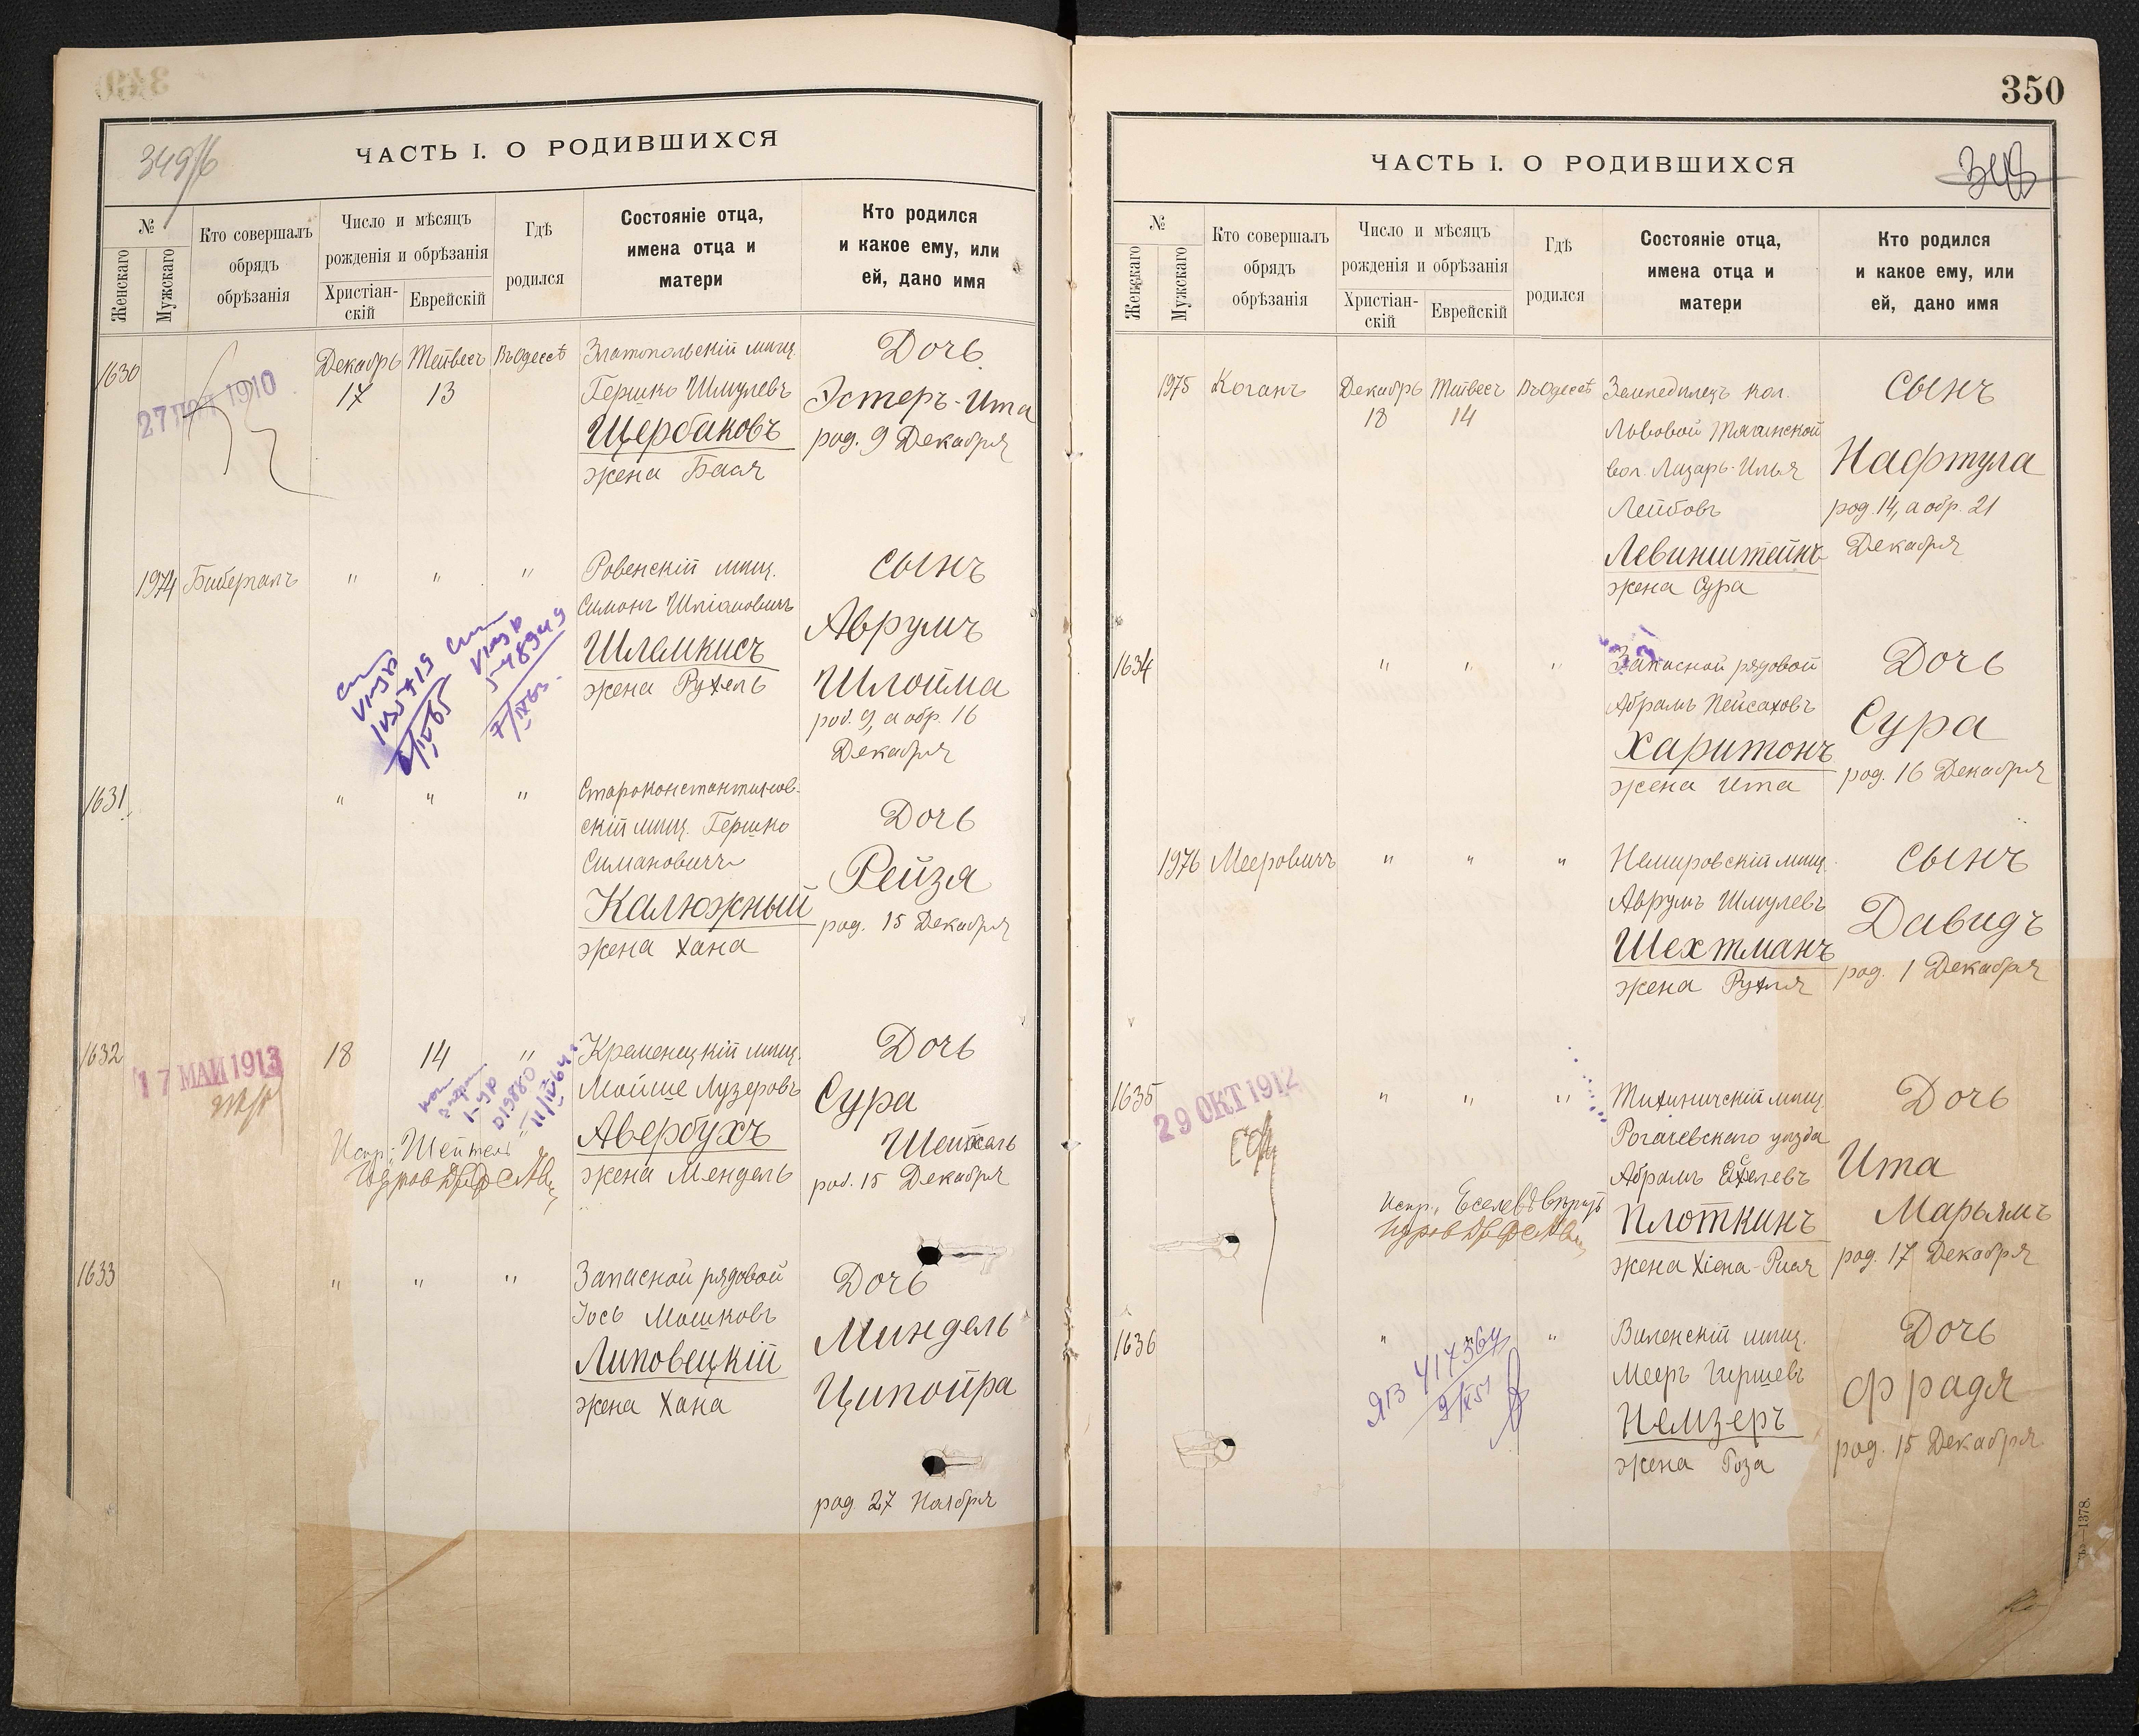 349/б
ЧАСТЬ I. О РОДИВШИХСЯ
№
Женскаго
Мужскаго
Кто совершалъ
обрядъ
обрѣзанія
Число и мѣсяцъ
рожденія и обрѣзанія
Христіан-
скій
Еврейскій
Гдѣ
родился
Состояніе отца,
имена отца и
матери
Кто родился
и какое ему, или
ей, дано имя
1630
27 1910
Декабрь
17
Тейвесъ
13
Въ Одессѣ
Златопольскій мѣщ.
Гершко Шмулевъ
Щербаковъ
жена Бася
Дочь
Эстеръ-Ита
род. 9 Декабря
1974
Биберталъ
" " "
Ровенскій мѣщ.
Симонъ
Шлемкисъ
жена Рухель
Сынъ
Аврумъ
Шлойма
род. 9, а обр. 16
Декабря
1631
" " "
Староконстантинов-
скій мѣщ. Гершко
Симановичъ
Калюжный
жена Хана
Дочь
Рейзя
род. 15 Декабря
1632
17 МАЙ 1913
18
14
"
Кременецкій мѣщ.
Мойше Лузеровъ
Авербухъ
жена Мендель
Дочь
Сура
Шейтель
род. 15 Декабря
Испр. "Шейтель"
1633
" " "
Запасной рядовой
Іось Мошковъ
Липовецкій
жена Хана
Дочь
Миндель
Ципойра
род. 27 Ноября
350
ЧАСТЬ I. О РОДИВШИХСЯ
№
Женскаго
Мужскаго
Кто совершалъ
обрядъ
обрѣзанія
Число и мѣсяцъ
рожденія и обрѣзанія
Христіан-
скій
Еврейскій
Гдѣ
родился
Состояніе отца,
имена отца и
матери
Кто родился
и какое ему, или
ей, дано имя
1975
Коганъ
Декабрь
18
Тейвесъ
14
Въ Одессѣ
Земледѣлецъ кол.
Львовой Тягинской
вол. Лазарь-Илья
Лейбовъ
Левинштейнъ
жена Сура
Сынъ
Нафтула
род. 14, а обр. 21
Декабря
1634
" " "
Запасной рядовой
Абрамъ Пейсаховъ
Харитонъ
жена Ита
Дочь
Сура
род. 16 Декабря
1976
Мееровичъ
" " "
Немировскій мѣщ.
Аврумъ Шмулевъ
Шехтманъ
жена Рухля
Сынъ
Давидъ
род. 1 Декабря
1635
29 ОКТ 1912
" " "
Тихиничскій мѣщ.
Рогачевскаго уѣзда
Абрамъ Еселевъ
Плоткинъ
жена Хіена-Рися
Дочь
Ита
Марьямъ
род. 17 Декабря
Испр. "Еселевъ" вѣрить
1636
" "
ЯВ 417364
9/X51
Виленскій мѣщ.
Мееръ Гиршевъ
Немзеръ
жена Роза
Дочь
Фрадя
род. 15 Декабря
1378.